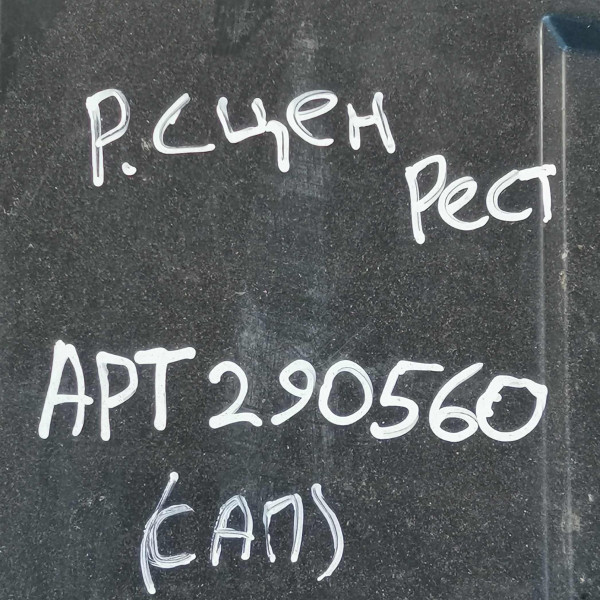 Р.Сцен
Рест
АРТ 290560
(САП)